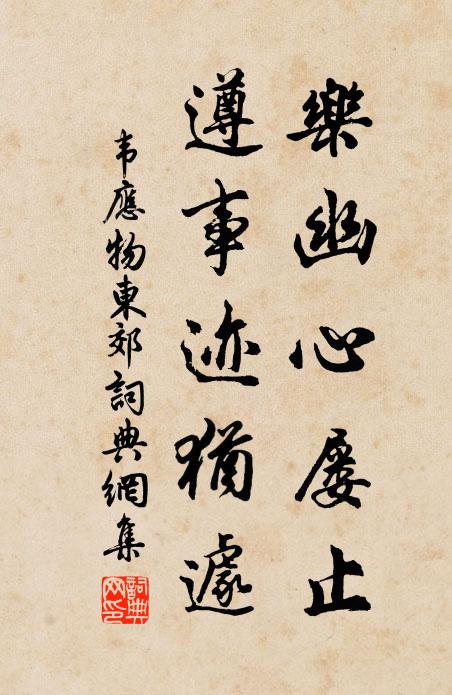 樂幽心屡止
遵事迹猶遽
韦應物東郊詞典網集
詞典
网印